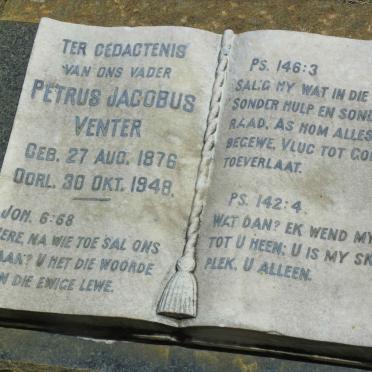 TER GEDACTENIS
VAN ONS VADER
PETRUS JACOBUS
VENTER
GEB. 27 AUG. 1876
OORL. 30 OKT. 1948.
JOH. 6:68
ERE, NA WIE TOE SAL ONS
AAN? U HET DIE WOORDE
N DIE EWIGE LEWE.
PS. 146:3
SALIG HY WAT IN DIE
SONDER HULP EN SOND
RAAD, AS HOM ALLES
BEGEWE, VLUG TOT GO
TOEVERLAAT.
PS. 142:4.
WAT DAN? EK WEND MY
TOT U HEEN; U IS MY SK
PLEK, U ALLEEN.